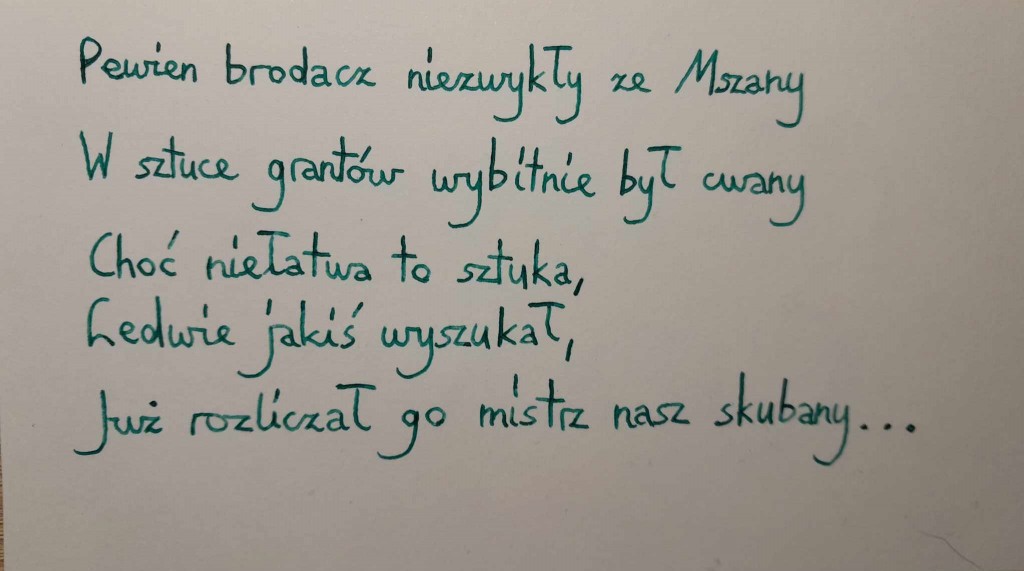 Pewien brodacz niezwykły ze Mszany
W sztuce grantów wybitnie był cwany
Choć niełatwa to sztuka,
Ledwie jakiś wyszukał,
Już rozliczał go mistrz nasz skubany...